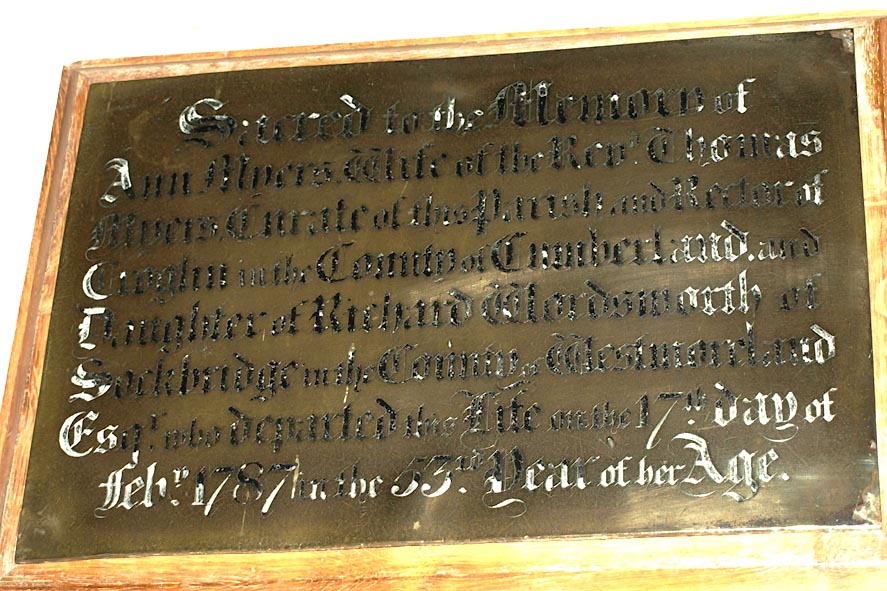 Sacred to the Memory of
Ann Myers, Wife of the Revd. Thomas
Myers, Curate of this Parish, and Rector of
Croglin in the County of Cumberland, and
Daughter of Richard Wordsworth of
Sockbridge in the County of Westmoreland
Esqr. who departed this Life on the 17th day of
Feby. 1787 in the 53rd. Year of her Age.